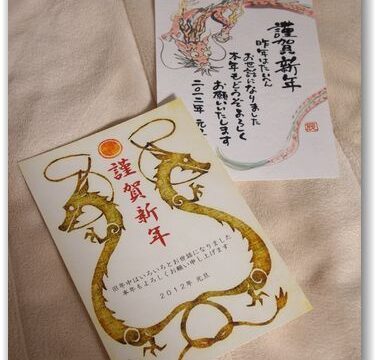 謹賀新年
昨年はたいへん
お世話になりました
本年もどうぞよろしく
お願いいたします
二〇一二年 元旦
謹賀新年
旧年中はいろいろとお世話になりました
本年もよろしくお願い申し上げます
2012年 元旦